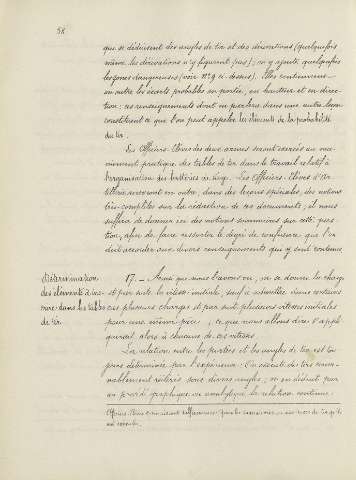 58
que se déduisent des angles de tir et des dérivations (quelquefois
même les dérivations n'y figurent pas); on y ajoute quelquefois
les zones dangereuses (voir N° 9 ci-dessus). Elles contiennent
en outre les écarts probables en portée, en hauteur et en direc-
tion: ces renseignements dont on parlera dans une autre leçon
constituent ce que l'on peut appeler les éléments de la probabilité
du tir.
Les Officiers-Elèves des deux armes seront exercés au ma-
niement pratique des tables de tir dans le travail relatif à
l'organisation des batteries de siège. Les Officiers-Elèves d'Ar-
tillerie recevront en outre, dans des leçons spéciales, des notions
très complètes sur la rédaction de ces documents; il nous
suffira de donner ici des notions sommaires sur cette ques-
tion, afin de faire ressortir le degré de confiance que l'on
doit accorder aux divers renseignements qui y sont contenus.
Détermination
des éléments à ins-
crire dans les tables
de tir
17. — Ainsi que nous l'avons vu, on se donne la charge
et par suite la vitesse initiale, sauf à admettre dans certains
cas plusieurs charges et par suite plusieurs vitesses initiales
pour une même pièce; ce que nous allons dire s'appli-
querait alors à chacune de ces vitesses.
La relation entre les portées et les angles de tir est tou-
jours déterminée par l'expérience. On exécute de tirs conve-
nablement répétés sous divers angles, on en déduit par
un procédé graphique ou analytique la relation continue